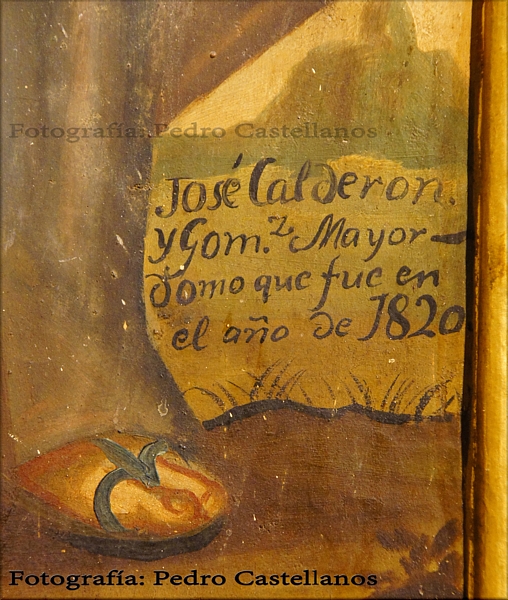 Fotografía: Pedro Castellanos
José Calderon.
y Gom.z Mayor-
domo que fue en
el año de 1820
Fotografía: Pedro Castellanos